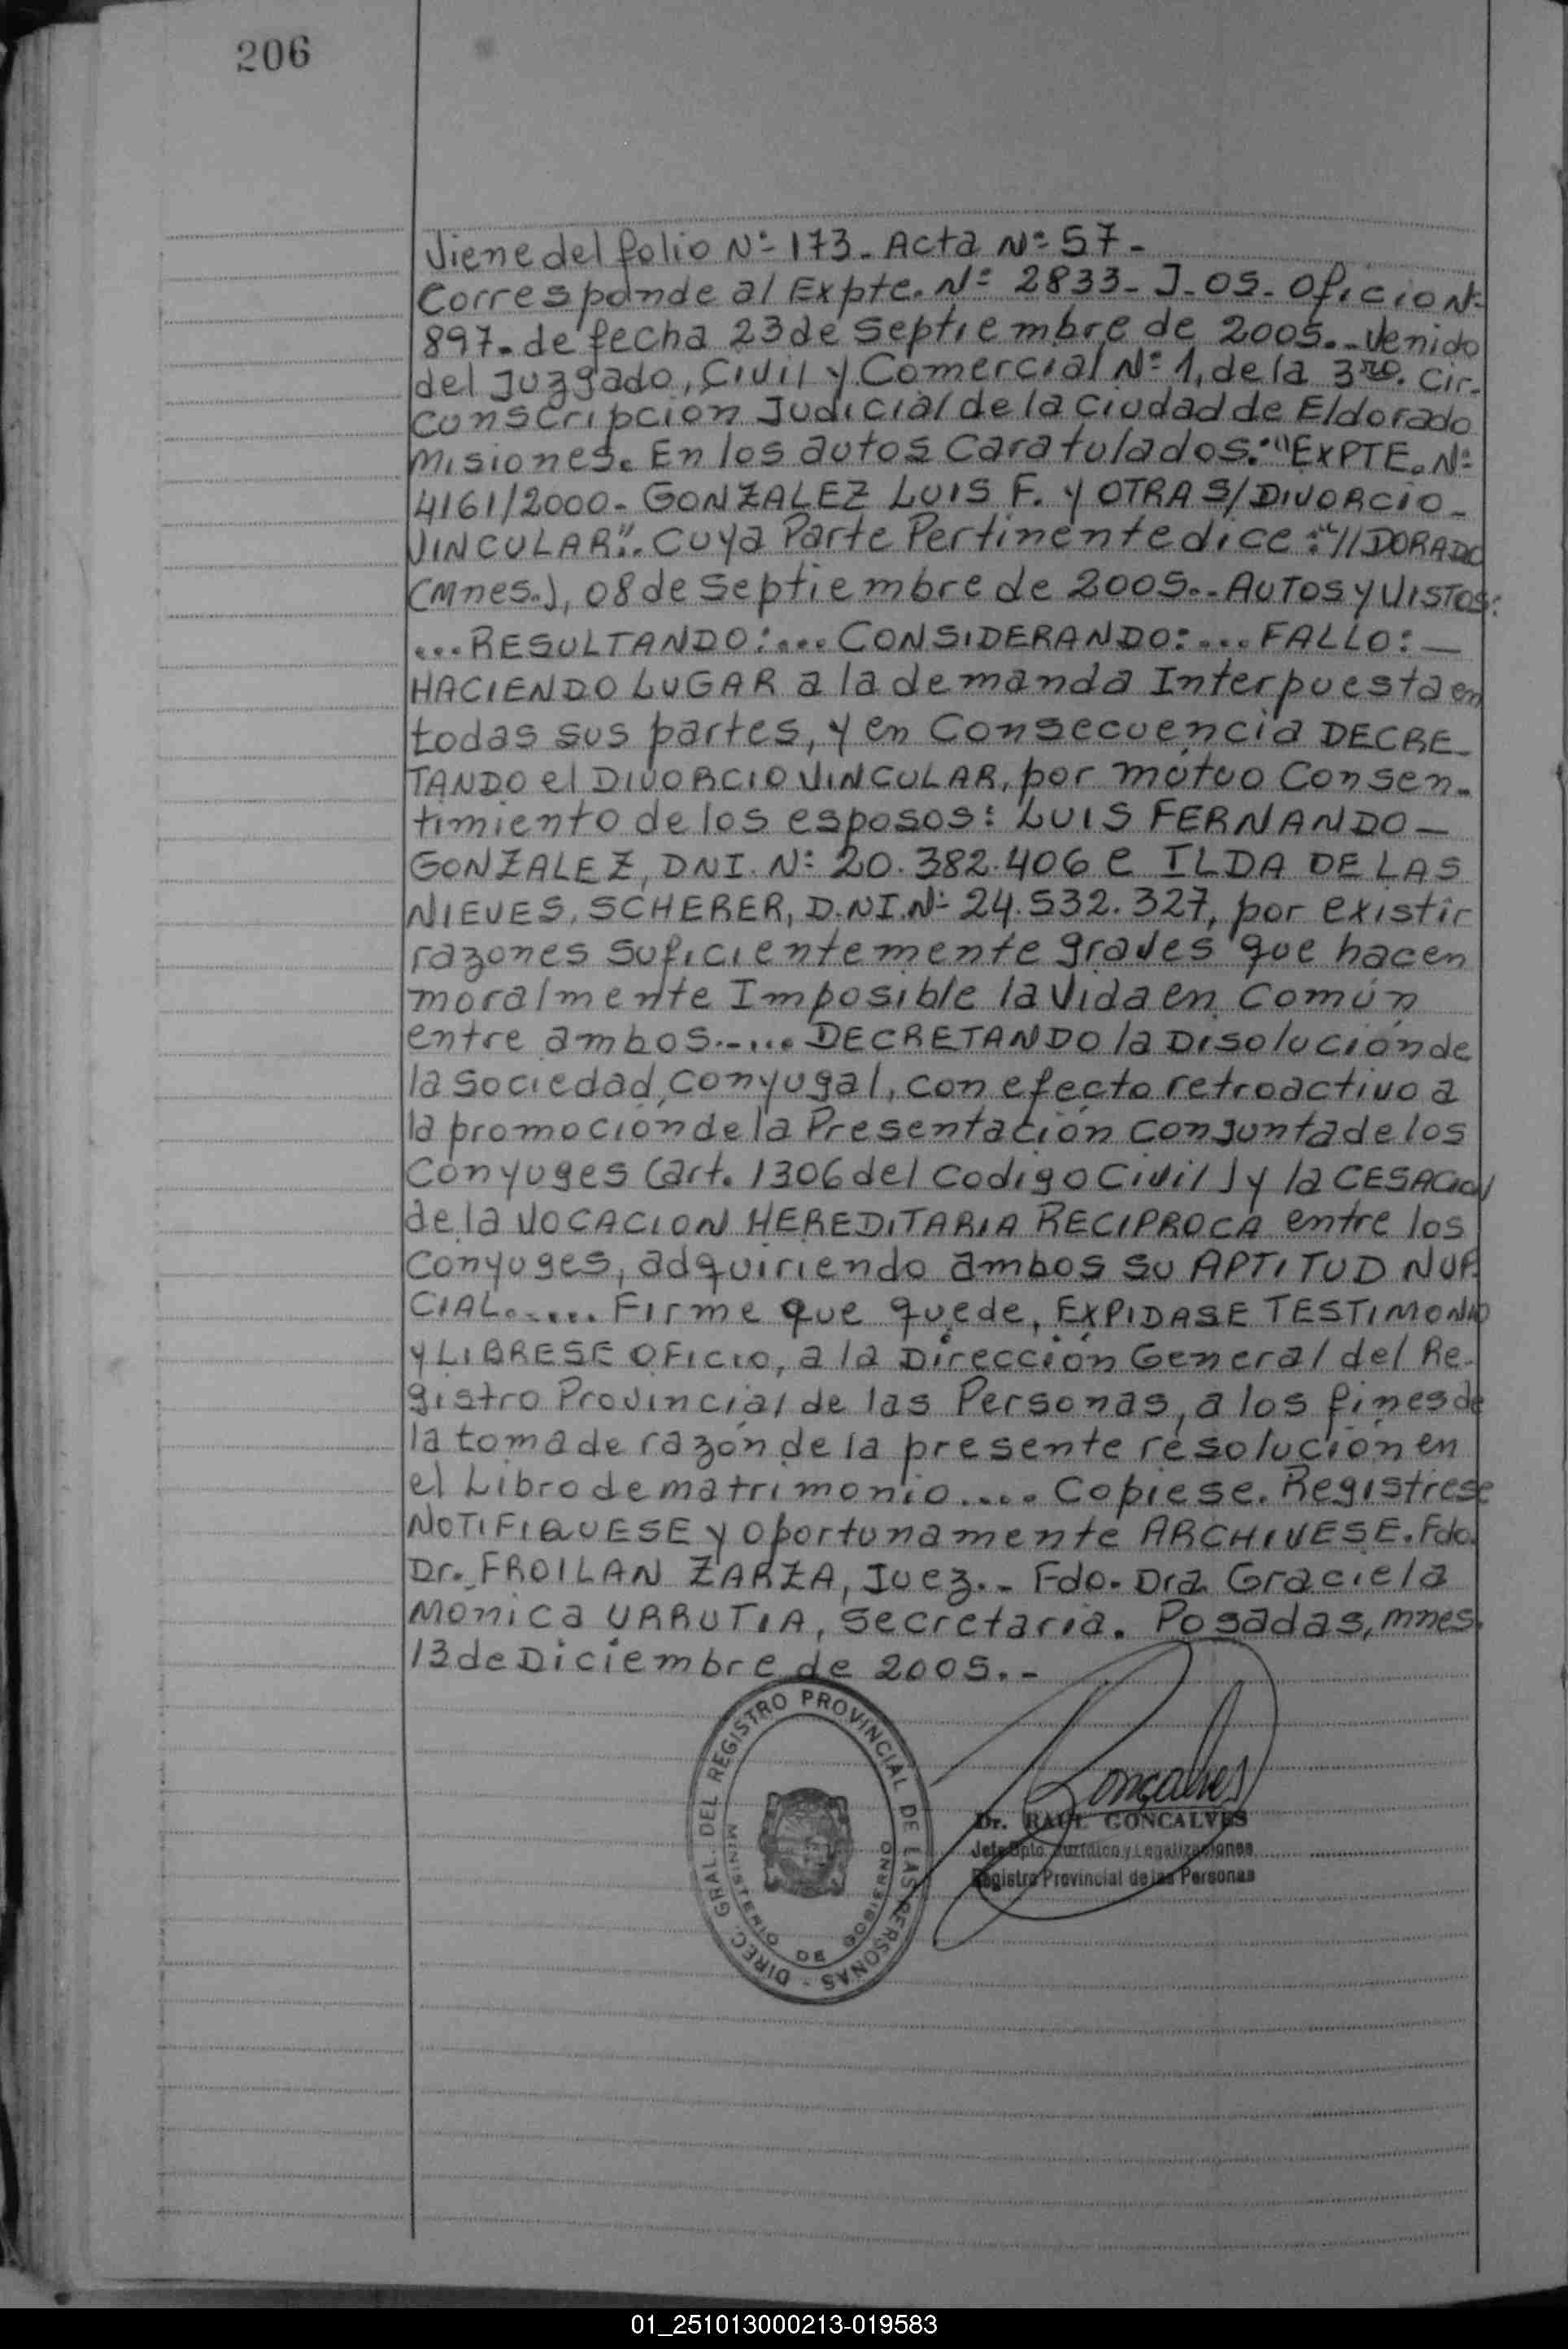 206
Viene del folio Nº 173. Acta Nº 57-
Corresponde al Expte. Nº 2833- J-05- Oficio Nº
897. de fecha 23 de septiembre de 2005.. Venido
del Juzgado, Civil y Comercial Nº 1, de la 3ra. Cir-
conscripción Judicial de la ciudad de Eldorado
Misiones. En los autos Caratulados: "EXPTE. Nº
4161/2000- GONZALEZ LUIS F. y OTRA S/DIVORCIO-
VINCULAR".. Cuya Parte Pertinente dice: "//DORADO
(Mnes.), 08 de septiembre de 2005.. AUTOS y VISTOS:
...RESULTANDO:... CONSIDERANDO:... FALLO: —
HACIENDO LUGAR a la demanda Interpuesta en
todas sus partes, y en Consecuencia DECRE-
TANDO el DIVORCIO VINCULAR, por mútuo Consen-
timiento de los esposos: LUIS FERNANDO —
GONZALEZ, DNI. Nº 20.382.406 e ILDA DE LAS
NIEVES, SCHERER, D.NI.Nº 24.532.327, por existir
razones suficientemente graves que hacen
moralmente Imposible la Vida en Común
entre ambos.-... DECRETANDO la Disolución de
la sociedad conyugal, con efecto retroactivo a
la promoción de la Presentación conjunta de los
Conyuges (art. 1306 del Codigo Civil) y la CESACION
de la VOCACION HEREDITARIA RECIPROCA entre los
Conyuges, adquiriendo ambos su APTITUD NUP-
CIAL..... Firme que quede, EXPIDASE TESTIMONIO
y LIBRESE OFICIO, a la Dirección General del Re-
gistro Provincial de las Personas, a los fines de
la toma de razón de la presente resolución en
el Libro de matrimonio.... Copiese. Registrese
NOTIFIQUESE y oportunamente ARCHIVESE. Fdo.
Dr. FROILAN ZARZA, Juez.- Fdo. Dra. Graciela
Monica URRUTIA, Secretaria. Posadas, mnes.
13 de Diciembre de 2005.-
DIREC. GRAL. DEL REGISTRO PROVINCIAL DE LAS PERSONAS -
MINISTERIO DE GOBIERNO
Goncalves
Dr. RAUL GONCALVES
Jefe Dpto. Jurídico y Legalizaciones
Registro Provincial de las Personas
01_251013000213-019583